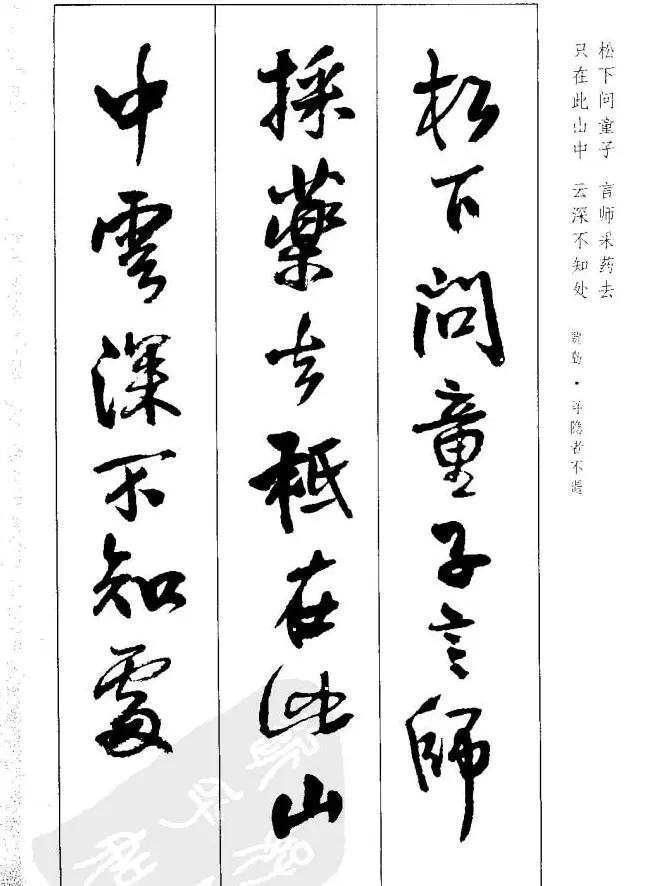 松下问童子 言师采药去
只在此山中 云深不知处
贾岛·寻隐者不遇
松下问童子言師
採藥去秖在此山
中雲深不知處